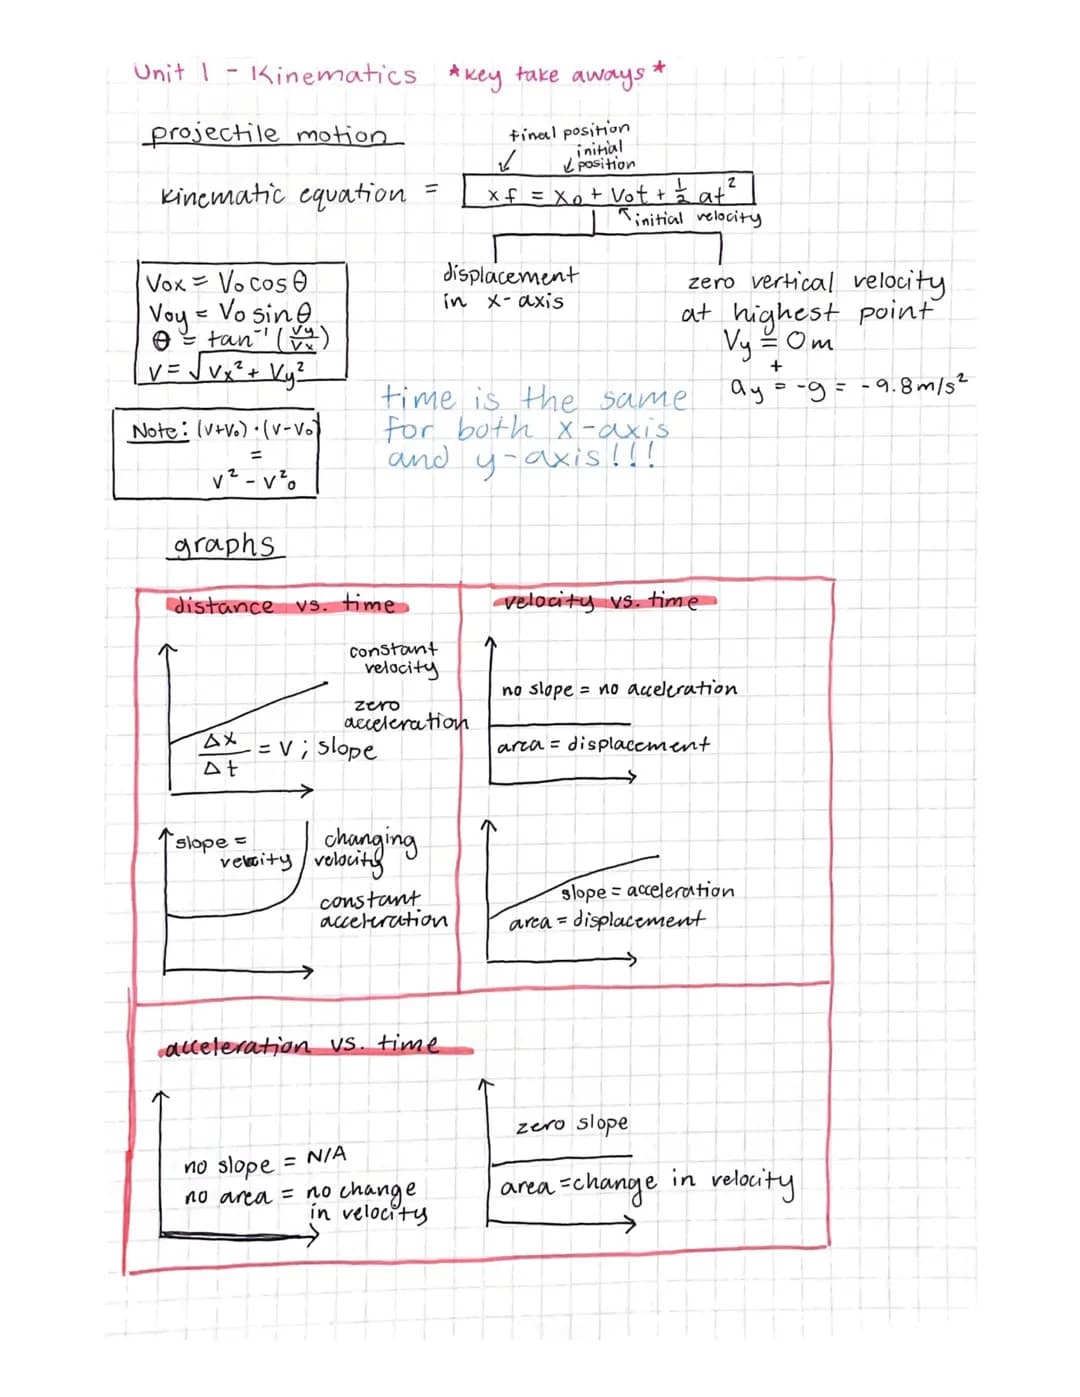 Unit 1 - Kinematics *key take aways*
projectile motion
final position
initial
position
kinematic equation = xf = x₀ + V₀t + ½ at²
initial velocity
displacement
in x-axis
zero vertical velocity
at highest point
Vy = 0m
+
ay = -g = -9.8m/s²
V₀x = V₀ cos θ
V₀y = V₀ sin θ
θ = tan⁻¹ (Vy/Vx)
V = √Vx² + Vy²
time is the same
for both x-axis
and y-axis!!!
Note: (V+V₀)·(V-V₀)
=
V² - V²₀
graphs
distance vs. time
constant
velocity
zero
acceleration
Δx/Δt = V ; slope
slope =
velocity
changing
velocity
constant
acceleration
velocity vs. time
no slope = no acceleration
area = displacement
slope = acceleration
area = displacement
acceleration vs. time
no slope = N/A
no area = no change
in velocity
zero slope
area = change in velocity